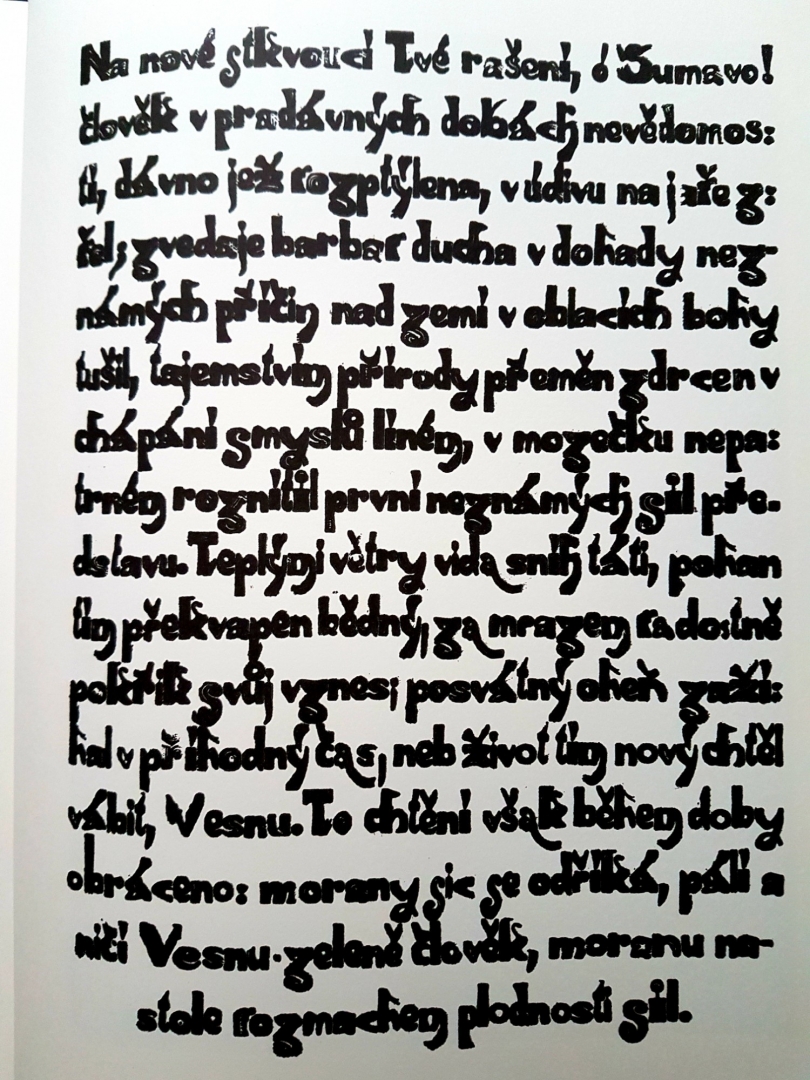 Na nové stkvoucí Tvé rašení, ó Šumavo!
člověk v pradávných dobách nevědomos:
ti, dávno jež rozptýlena, v údivu na jaře z:
řel; zvedaje barbar ducha v dohady nez-
námých příčin nad zemí v oblacích bohy
tušil, tajemstvím přírody přeměn zdrcen v
chápání smyslů líném, v mozečku nepa:
trném roznítil první neznámých sil pře-
dstavu. Teplými větry vida sníh táti, pohan
tím překvapen bědný, za mrazem radostně
pokřik svůj vznes; posvátný oheň zaží:
hal v příhodný čas, neb život tím nový chtěl
vábit, Vesnu. To chtění však během doby
obráceno: morany sic se odříká, pálí a
ničí Vesnu-zeleně člověk, moranu na-
stole rozmachem plodnosti sil.